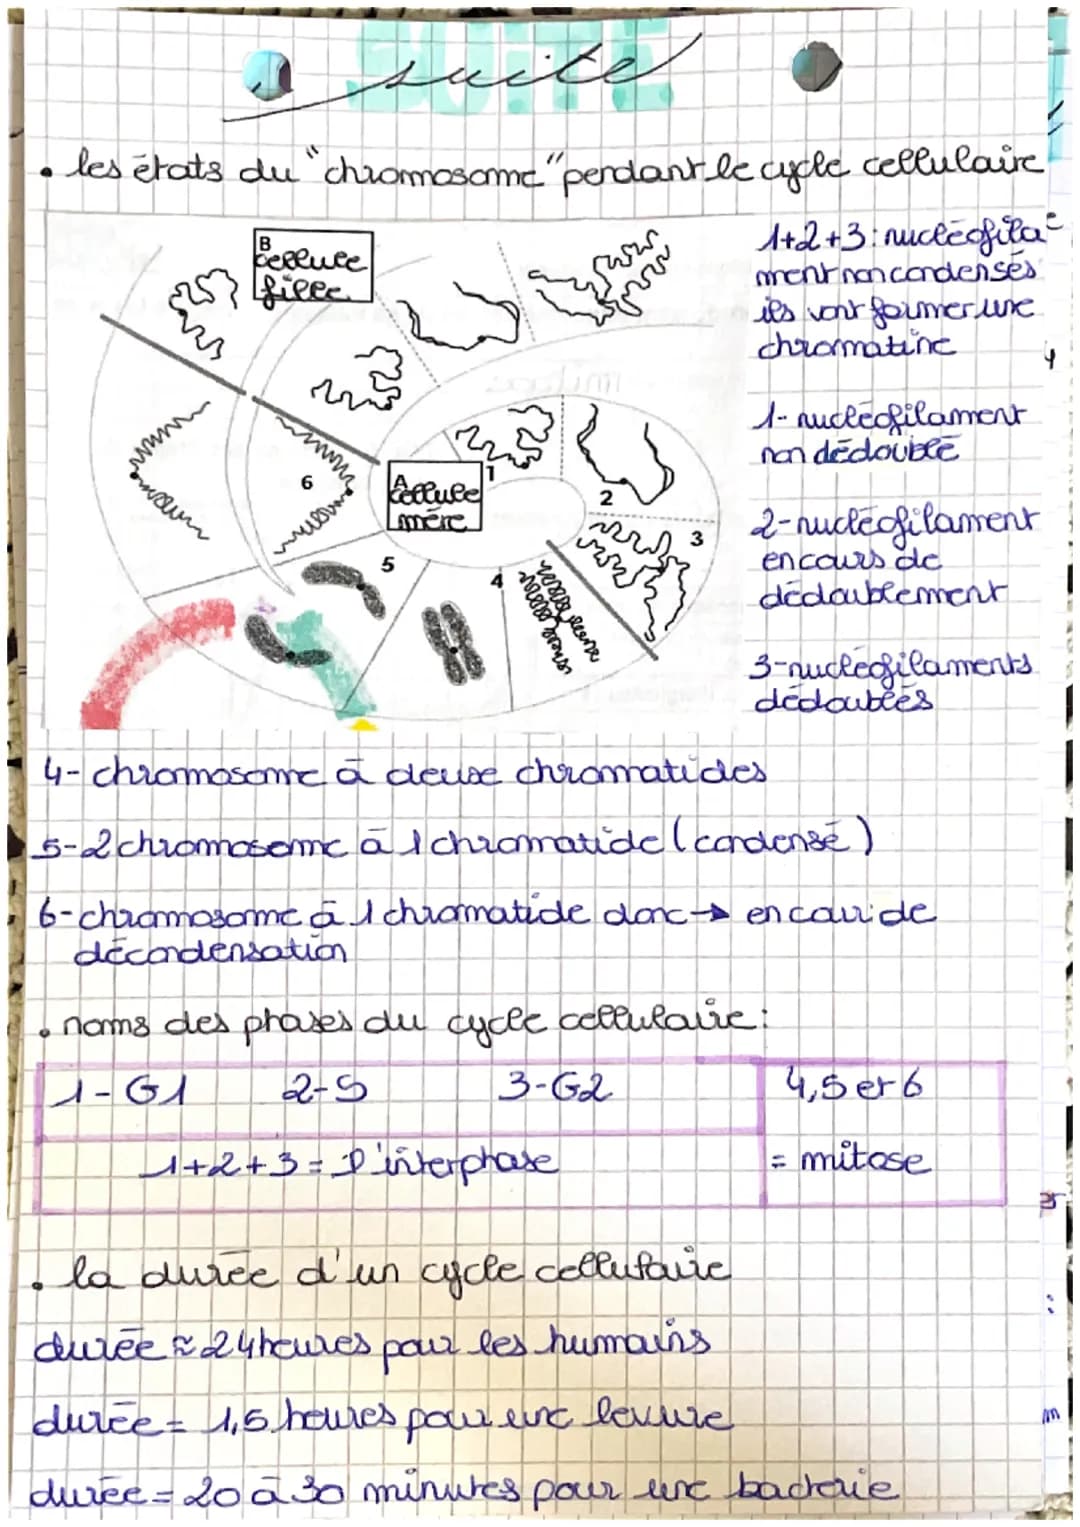 SUITE
suite
• les états du "chromosome" pendant le cycle cellulaire
B
cellule
fille
A
cellule
mère
1
2
3
4
5
6
1+2+3 : nucléofila
ment non condensés
ils vont former une
chromatine
1- nucléofilament
non dédoublé
2- nucléofilament
en cours de
dédoublement
3- nucléofilaments
dédoublés
4- chromosome à deuse chromatides
5- 2 chromosome à 1 chromatide (condensé)
6- chromosome à 1 chromatide donc → en cour de
décondensation
• noms des phases du cycle cellulaire :
1- G1 2- S 3- G2 4,5 et 6
1+2+3 = l'interphase = mitose
• la durée d'un cycle cellulaire
durée ≈ 24 heures pour les humains
durée = 1,5 heures pour une levure
durée = 20 à 30 minutes pour une bacterie